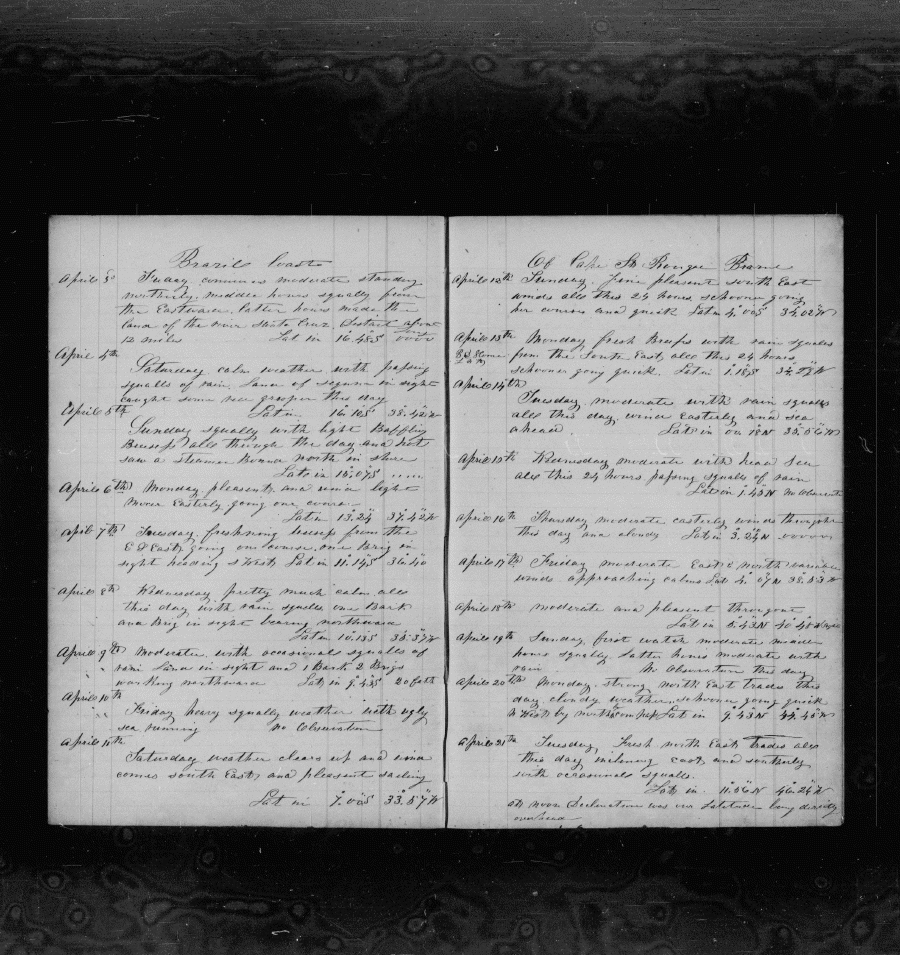 Brazil Coasts
April 3 Friday commences moderate standing
northerly, middle hours squally from
the Eastward. latter hours made the
land of the river Santa Cruz, District about
12 miles Lat in 16.48S
April 4th
Saturday calm weather with passing
squalls of rain. land of in sight
caught some red grouper this day
April 5th Lat in 16.10S 38.42W
Sunday squally with light Baffling
Breesep all through the day and hot
saw a steamer Bound north in shore
Lat in 15.07S
April 6th Monday pleasant and wind light
more Easterly going our course
Lat in 13.24 37.42W
April 7th Tuesday, freshning breesep from the
E & East, going on course. one Brig in
sight heading S West Lat in 11.14S 36.40
April 8th Wednesday pretty much calm all
this day with rain squlls one Bark
and Brig in sight bearing northward
Lat in 10.13S 35.37W
April 9th moderate with occasional squalls of
rain land in sight and 1 Bark 2 Brigs
working northward Lat in 9.43S 20 fath
April 10th
Friday heavy squally weather with ugly
sea running no Observation
April 11th
Saturday weather clears up and wind
comes south East, and pleasant sailing
Lat in 7.00S 33.57W
Of Cape St Roque
April 12th Sunday, fine pleasant south East
winds all this 24 hours schooner going
her course and quick Lat in 4.00S 34.02W
April 13th Monday fresh Breesep with rain squalls
from the South East, all this 24 hours
schooner going quick. Lat in 1.18S 34.28W
April 14th
Tuesday, moderate with rain squalls
all this day, wind Easterly and sea
ahead Lat in 00.18N 35.56W
April 15th Wednesday moderate with head Sea
all this 24 hours passing squalls of rain
Lat in 1.43N no Observat
April 16th Thursday moderate easterly winds throughout
this day and cloudy Lat in 3.24N
April 17th Friday moderate East & north variable
winds approaching calms Lat 4.07N 38.53W
April 18th moderate and pleasant througout
Lat in 5.43N 40.40
April 19th Sunday, first watch moderate middle
hours squally, latter hours moderate with
rain No Observation this day
April 20th Monday. strong north East trades this
day cloudy weather, schooner going quick
N West by north Compass Lat in 9.43N 44.45W
April 21th Tuesday, Fresh north East trades all
this day inclining east and southerly
with occasional squalls.
Lat in 11.56N 46.24W
at noon Declination was our Latitude being directly
overhead